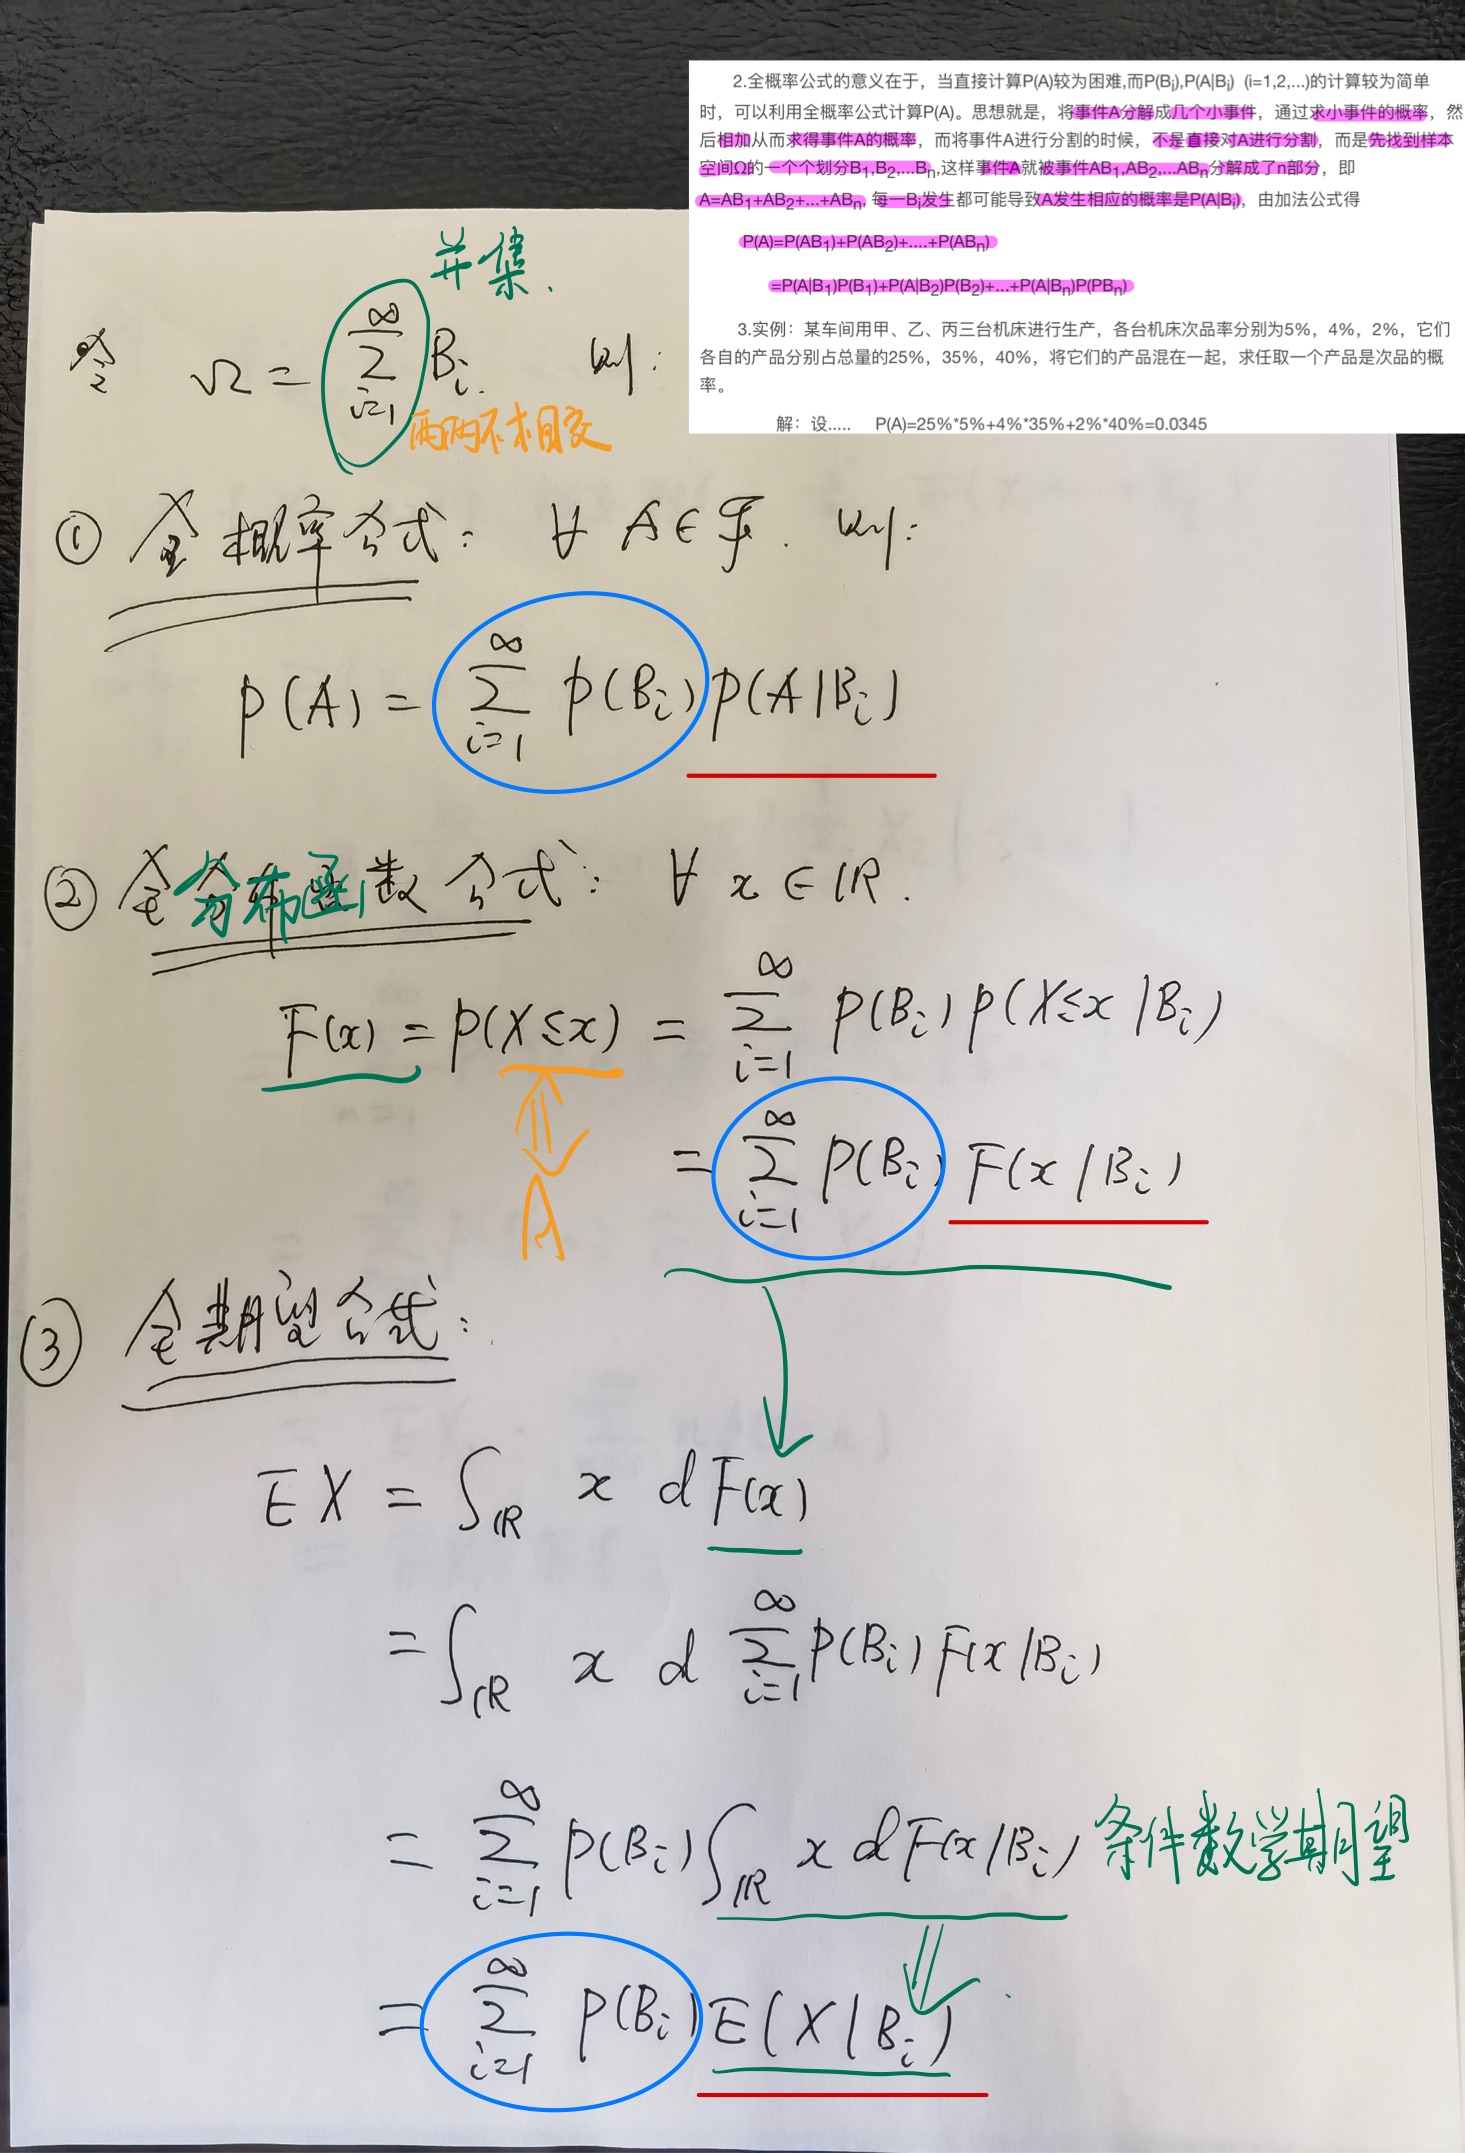 2.全概率公式的意义在于，当直接计算P(A)较为困难,而P(Bᵢ),P(A|Bᵢ)  (i=1,2,...)的计算较为简单
时，可以利用全概率公式计算P(A)。思想就是，将事件A分解成几个小事件，通过求小事件的概率，然
后相加从而求得事件A的概率，而将事件A进行分割的时候，不是直接对A进行分割，而是先找到样本
空间Ω的一个个划分B₁,B₂,...Bₙ,这样事件A就被事件AB₁,AB₂,...ABₙ分解成了n部分，即
A=AB₁+AB₂+...+ABₙ, 每一Bᵢ发生都可能导致A发生相应的概率是P(A|Bᵢ)，由加法公式得
P(A)=P(AB₁)+P(AB₂)+....+P(ABₙ)
=P(A|B₁)P(B₁)+P(A|B₂)P(B₂)+...+P(A|Bₙ)P(PBₙ)
3.实例：某车间用甲、乙、丙三台机床进行生产，各台机床次品率分别为5%，4%，2%，它们
各自的产品分别占总量的25%，35%，40%，将它们的产品混在一起，求任取一个产品是次品的概
率。
解：设..... P(A)=25%*5%+4%*35%+2%*40%=0.0345
并集.
Ω = ∑_{i=1}^{∞} Bᵢ. 则:
两两不相交
① 全概率公式: ∀ A∈ℱ. 则:
P(A) = ∑_{i=1}^{∞} P(Bᵢ) P(A|Bᵢ)
② 全分布函数公式: ∀ x∈ℝ.
F(x) = P(X≤x) = ∑_{i=1}^{∞} P(Bᵢ) P(X≤x|Bᵢ)
= ∑_{i=1}^{∞} P(Bᵢ) F(x|Bᵢ)
A
③ 全期望公式:
EX = ∫_ℝ x dF(x)
= ∫_ℝ x d ∑_{i=1}^{∞} P(Bᵢ) F(x|Bᵢ)
= ∑_{i=1}^{∞} P(Bᵢ) ∫_ℝ x dF(x|Bᵢ) 条件数学期望
= ∑_{i=1}^{∞} P(Bᵢ) E(X|Bᵢ)